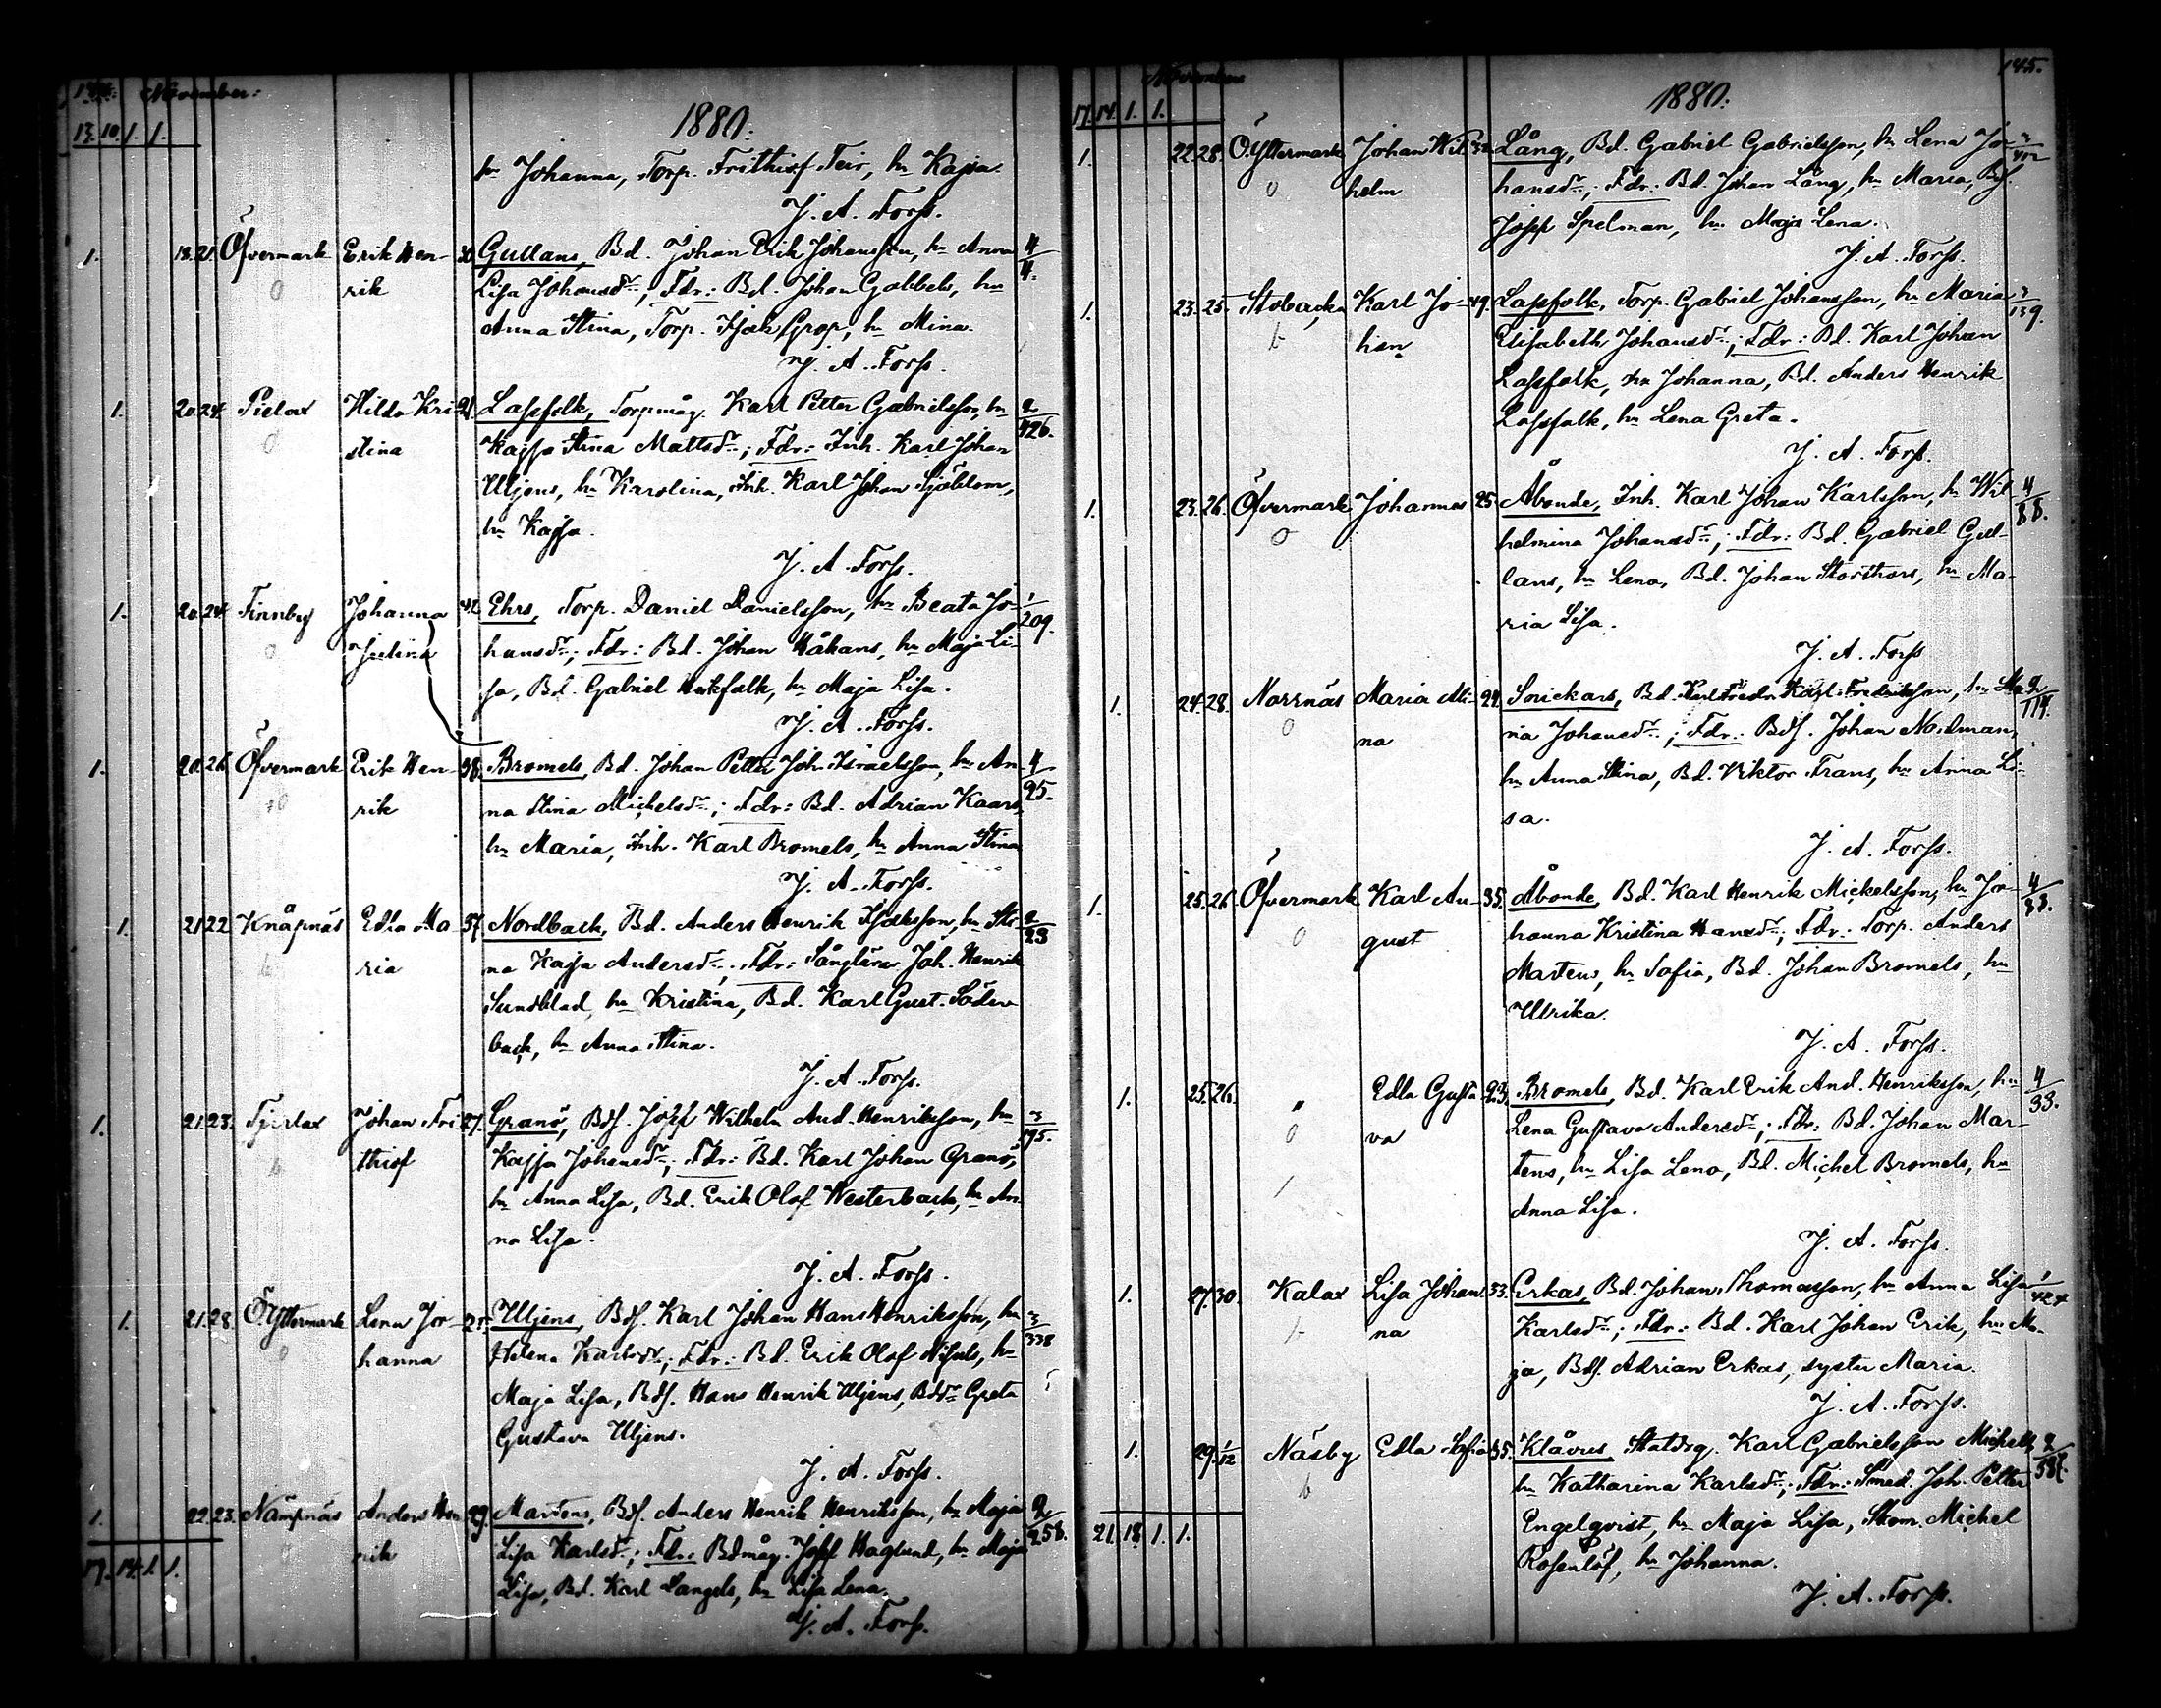 144. November.
13. 10. 1. 1.
1880.
hu Johanna, Torp. Frithiof Teir, hu Kajsa.
J. A. Forss.
1. 19. 21. Öfvermark Erik Hen- 30. Gullans, Bd. Johan Erik Johansson, hu Anna 4/4.
o rik Lisa Johansdr; Fdr: Bd. Johan Gabbels, hu
Anna Stina, Torp. Isak Grop, hu Mina.
J. A. Forss.
1. 20. 24. Pielax Hilda Kri- Lassfolk, Torpmåg. Karl Petter Gabrielsson, hu 2/426.
o stina Kajsa Stina Mattsdr; Fdr: Inh. Karl Johan
Uljens, hu Karolina, Inh. Karl Johan Sjöblom,
hu Kajsa.
J. A. Forss.
1. 20. 24. Finnby Johanna 42. Ehrs, Torp. Daniel Danielsson, hu Beata Jo- 1/209.
o Julina hansdr; Fdr: Bd. Johan Håkans, hu Maja Li-
sa, Bd. Gabriel, hu Maja Lisa.
J. A. Forss.
1. 20. 26. Öfvermark Erik Hen- 38. Bromels, Bd. Johan Petter Joh. Israelsson, hu An- 4/25.
o rik na Stina Michelsdr; Fdr: Bd. Adrian Kaars,
hu Maria, Inh. Karl Bromels, hu Anna Stina
J. A. Forss.
1. 21. 22. Knåpnäs Edla Ma- 37. Nordback, Bd. Anders Henrik Isaksson, hu Sti- 2/23
b ria na Kajsa Andersdr; Fdr: Sånglärar Joh. Henrik
Sundblad, hu Kristina, Bd. Karl Gust. Söder-
back, hu Anna Stina.
J. A. Forss.
1. 21. 23. Tjerlax Johan Fri- 27. Granö, Bds. Josef Wilhelm And. Henriksson, hu 3/195.
b thiof Kajsa Johansdr; Fdr: Bd. Karl Johan Granö,
hu Anna Lisa, Bd. Erik Olof Westerback, hu An-
na Lisa.
J. A. Forss.
1. 21. 28. Ö. Yttermark Lena Jo- 21. Uljens, Bds. Karl Johan Hans Henriksson, hu 3/338
hanna Helena Karlsdr; Fdr: Bd. Erik Olof Nisuls, hu
Maja Lisa, Bds. Hans Henrik Uljens, Bddr Greta
Gustava Uljens.
J. A. Forss.
1. 22. 23. Nämpnäs Anders Hen- 29. Martens, Bds. Anders Henrik Henriksson, hu Maja 2/258.
o rik Lisa Karlsdr; Fdr: Bdmåg. Josef Haglund, hu Maja
Lisa, Bd. Karl Dangels, hu Lisa Lena.
17. 14. 1. 1.
J. A. Forss.
November 145.
17. 14. 1. 1.
1880.
1. 22. 28. Ö. Yttermark Johan Wil- 32. Lång, Bd. Gabriel Gabrielsson, hu Lena Jo- 3/402
o helm hansdr; Fdr: Bd. Johan Lång, hu Maria, Bds.
Josef Spelman, hu Maja Lena.
J. A. Forss.
1. 23. 25. Stobacka Karl Jo- 49. Lassfolk, Torp. Gabriel Johansson, hu Maria 3/139.
b han Elisabeth Johansdr; Fdr: Bd. Karl Johan
Lassfolk, hu Johanna, Bd. Anders Henrik
Lassfolk, hu Lena Greta.
J. A. Forss.
1. 23. 26. Öfvermark Johannes 25. Åbonde, Inh. Karl Johan Karlsson, hu Wil- 4/88.
o helmina Johansdr; Fdr: Bd. Gabriel Gul-
lans, hu Lena, Bd. Johan Storthors, hu Ma-
ria Lisa.
J. A. Forss
1. 24. 28. Norrnäs Maria Mi- 24. Snickars, Bd. Karl Fredr. Karl Fredriksson, hu Sti- 2/114.
o na na Johansdr; Fdr: Bds. Johan Nordman,
hu Anna Stina, Bd. Viktor Frans, hu Anna Li-
sa.
J. A. Forss.
1. 25. 26. Öfvermark Karl Au- 35. Åbonde, Bd. Karl Henrik Mickelsson, hu Jo- 4/88.
o gust hanna Kristina Hansdr; Fdr: Torp. Anders
Martens, hu Sofia, Bd. Johan Bromels, hu
Ulrika.
J. A. Forss.
1. 25. 26. " Edla Gusta- 23. Bromels, Bd. Karl Erik And. Henriksson, hu 4/33.
o va Lena Gustava Andersdr; Fdr: Bd. Johan Mar-
tens, hu Lisa Lena, Bd. Michel Bromels, hu
Anna Lisa.
J. A. Forss.
1. 27. 30. Kalax Lisa Johan- 33. Erkas, Bd. Johan Thomasson, hu Anna Lisa
b na Karlsdr; Fdr: Bd. Karl Johan Erik, hu Ma-
ja, Bds. Adrian Erkas, syster Maria.
J. A. Forss.
1. 29. 1/12 Näsby Edla Sofia 35. Klåvus, Statdrg. Karl Gabrielsson Michels,
b hu Katharina Karlsdr; Fdr: Smed. Joh. Petter
21. 18. 1. 1. Engelqvist, hu Maja Lisa, Skom. Michel
Rosenlöf, hu Johanna.
J. A. Forss.